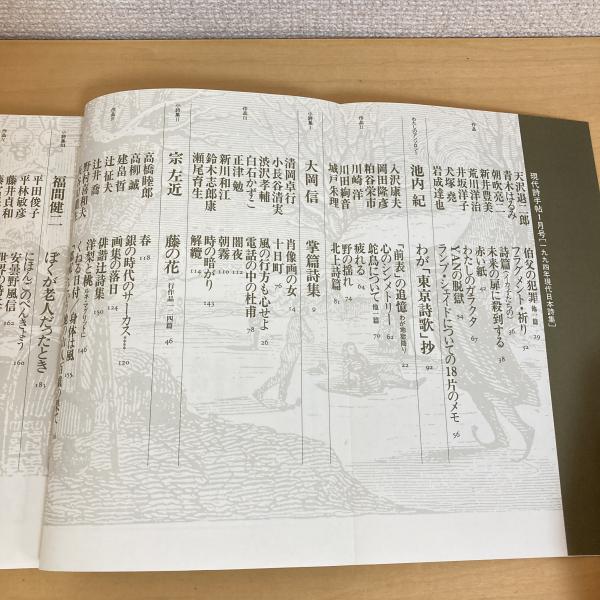 現代詩手帖1月号[一九九四年現代日本詩集]
作品I
天沢退二郎 伯父の犯罪 他一篇 29
青木はるみ フラグメント・祈り 32
朝吹亮二
新井豊美
荒川洋治 未来の扉に殺到する 38
犬塚堯 赤い紙 42
井坂洋子 わたしのガラクタ 67
岩成達也
YANの脱獄 74
ランプ・シェイドについての18片のメモ 56
わたしのアンソロジー
池内紀 わが「東京詩歌」抄 92
作品II
入沢康夫 「前表」の追憶 わが地獄降り 22
岡田隆彦 心のシンメトリー 62
粕谷栄市 鴕鳥について 他一篇 79
川崎洋 疲れる 64
川田絢音 野の揺れ 74
城戸朱理 北上詩篇 81
小詩集I
大岡信 掌篇詩集 9
作品III
清岡卓行 肖像画の女 14
小長谷清実 十日町 76
渋沢孝輔 風の行方も心せよ 26
白石かずこ 電話の中の杜甫 78
正津勉 闇夜
新川和江 朝霧
鈴木志郎康 時の暗がり 143
瀬尾育生 解纜 114
小詩集II
宗左近 藤の花 行作品一四篇 46
作品IV
高橋睦郎 春 118
高柳誠 銀の時代のサーカス
建畠晢 画集の落日 124
辻征夫 俳諧辻詩集 150
辻井喬 洋梨と桃
野村喜和夫
小詩集III
福間健二 ぼくが老人だったとき 183
作品V
平田俊子 にほんごのべんきょう 160
平林敏彦 安曇野風信 162
藤井貞和